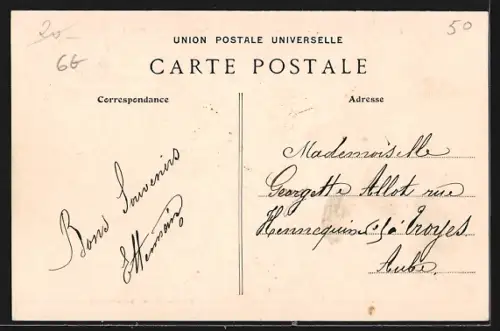 20-
66
50
UNION POSTALE UNIVERSELLE
CARTE POSTALE
Correspondance
Adresse
Bons Souvenirs
Mademoiselle
Georgette Allot rue
Hennequin à Troyes
Aube.